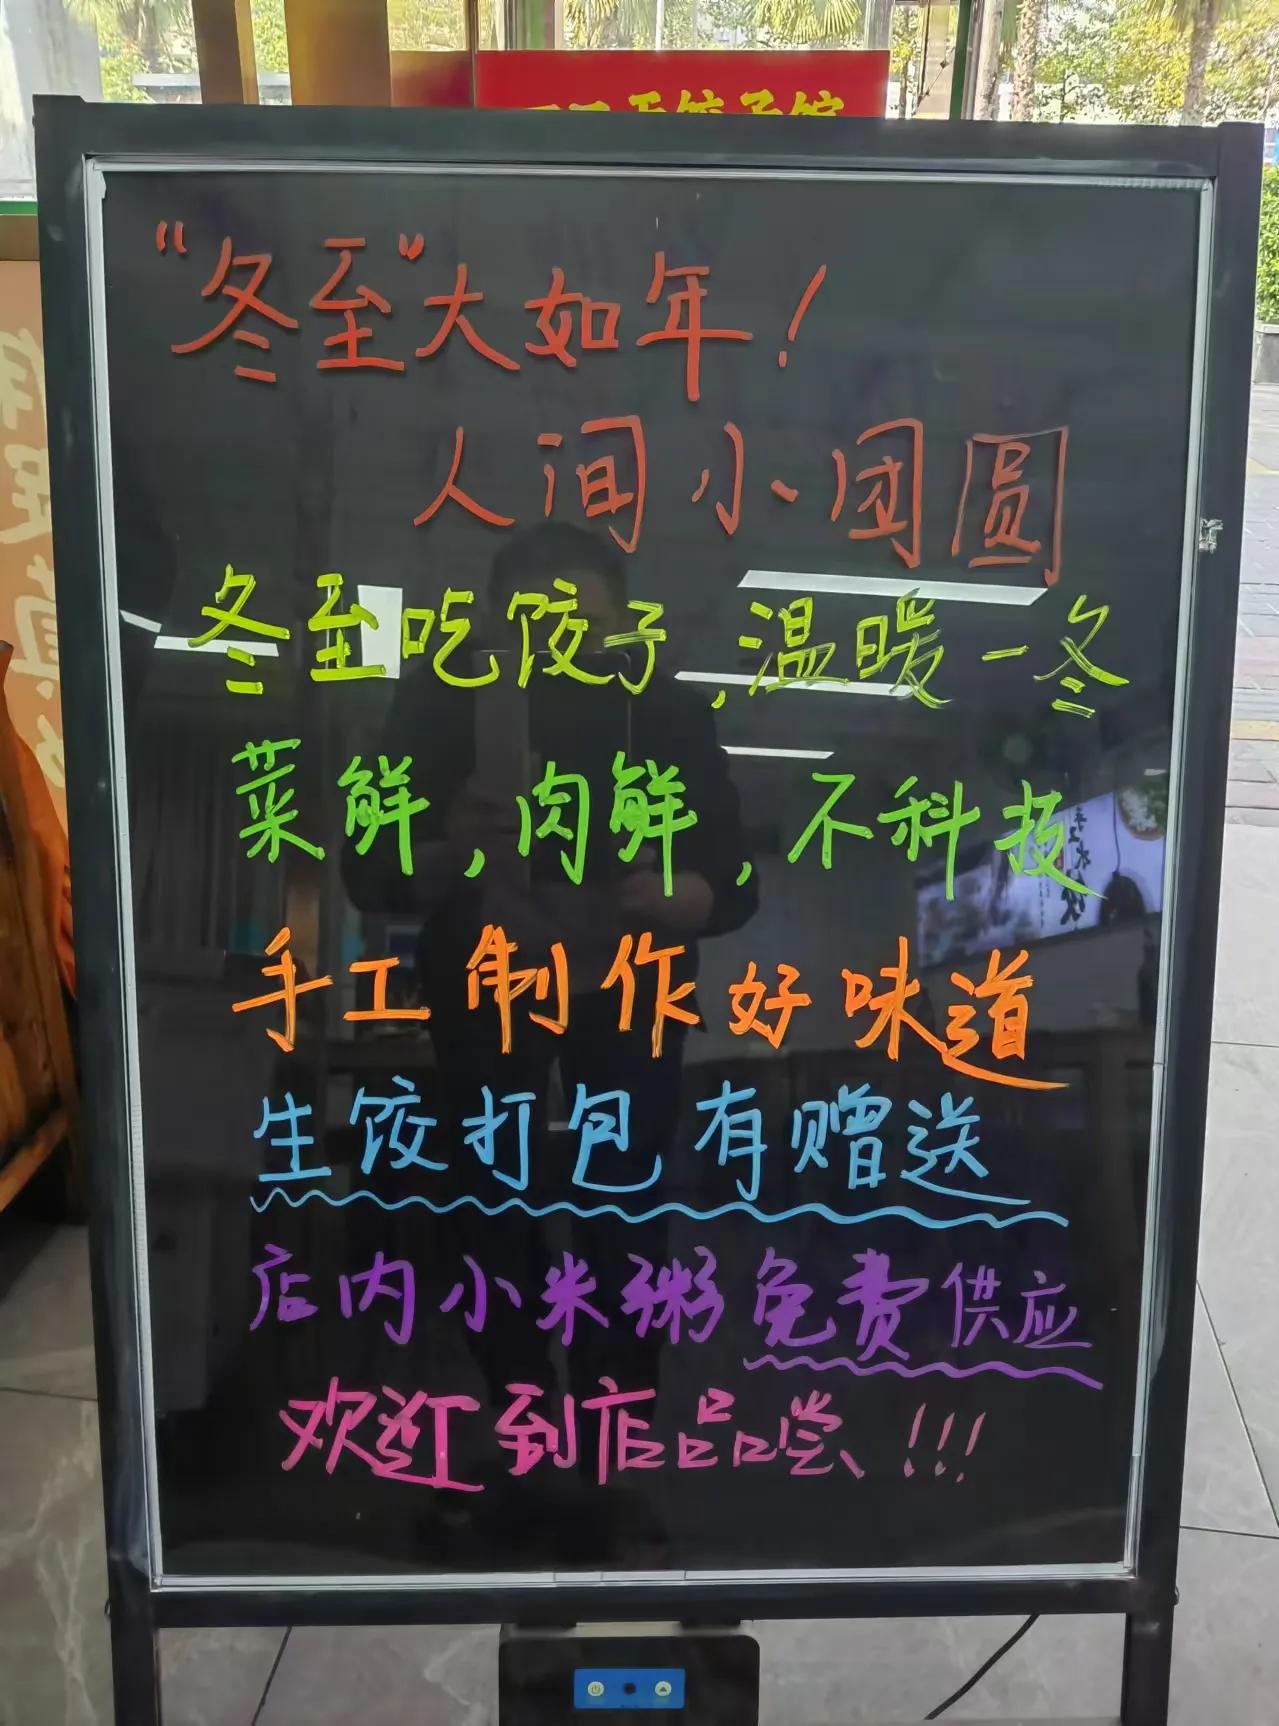 饺子馆
“冬至”大如年！
人间小团圆
冬至吃饺子,温暖一冬
菜鲜,肉鲜,不科技
手工制作好味道
生饺打包有赠送
店内小米粥免费供应
欢迎到店品尝、!!!
手工水饺